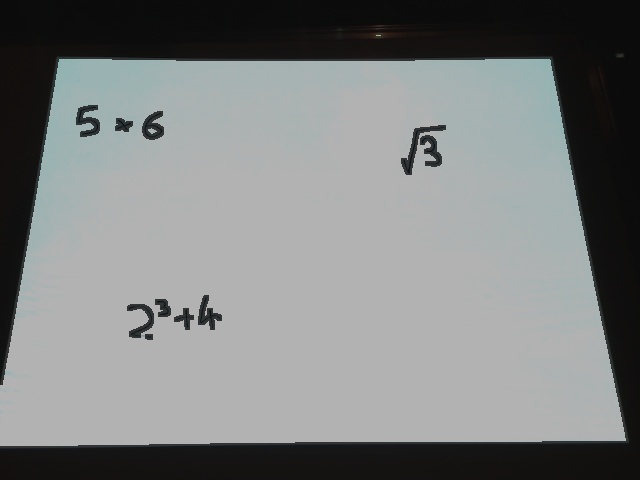 5 * 6
√3
2³+4